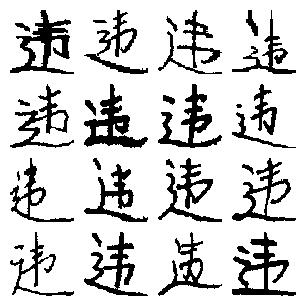 违违违违
违违违违
违违违违
违违违违